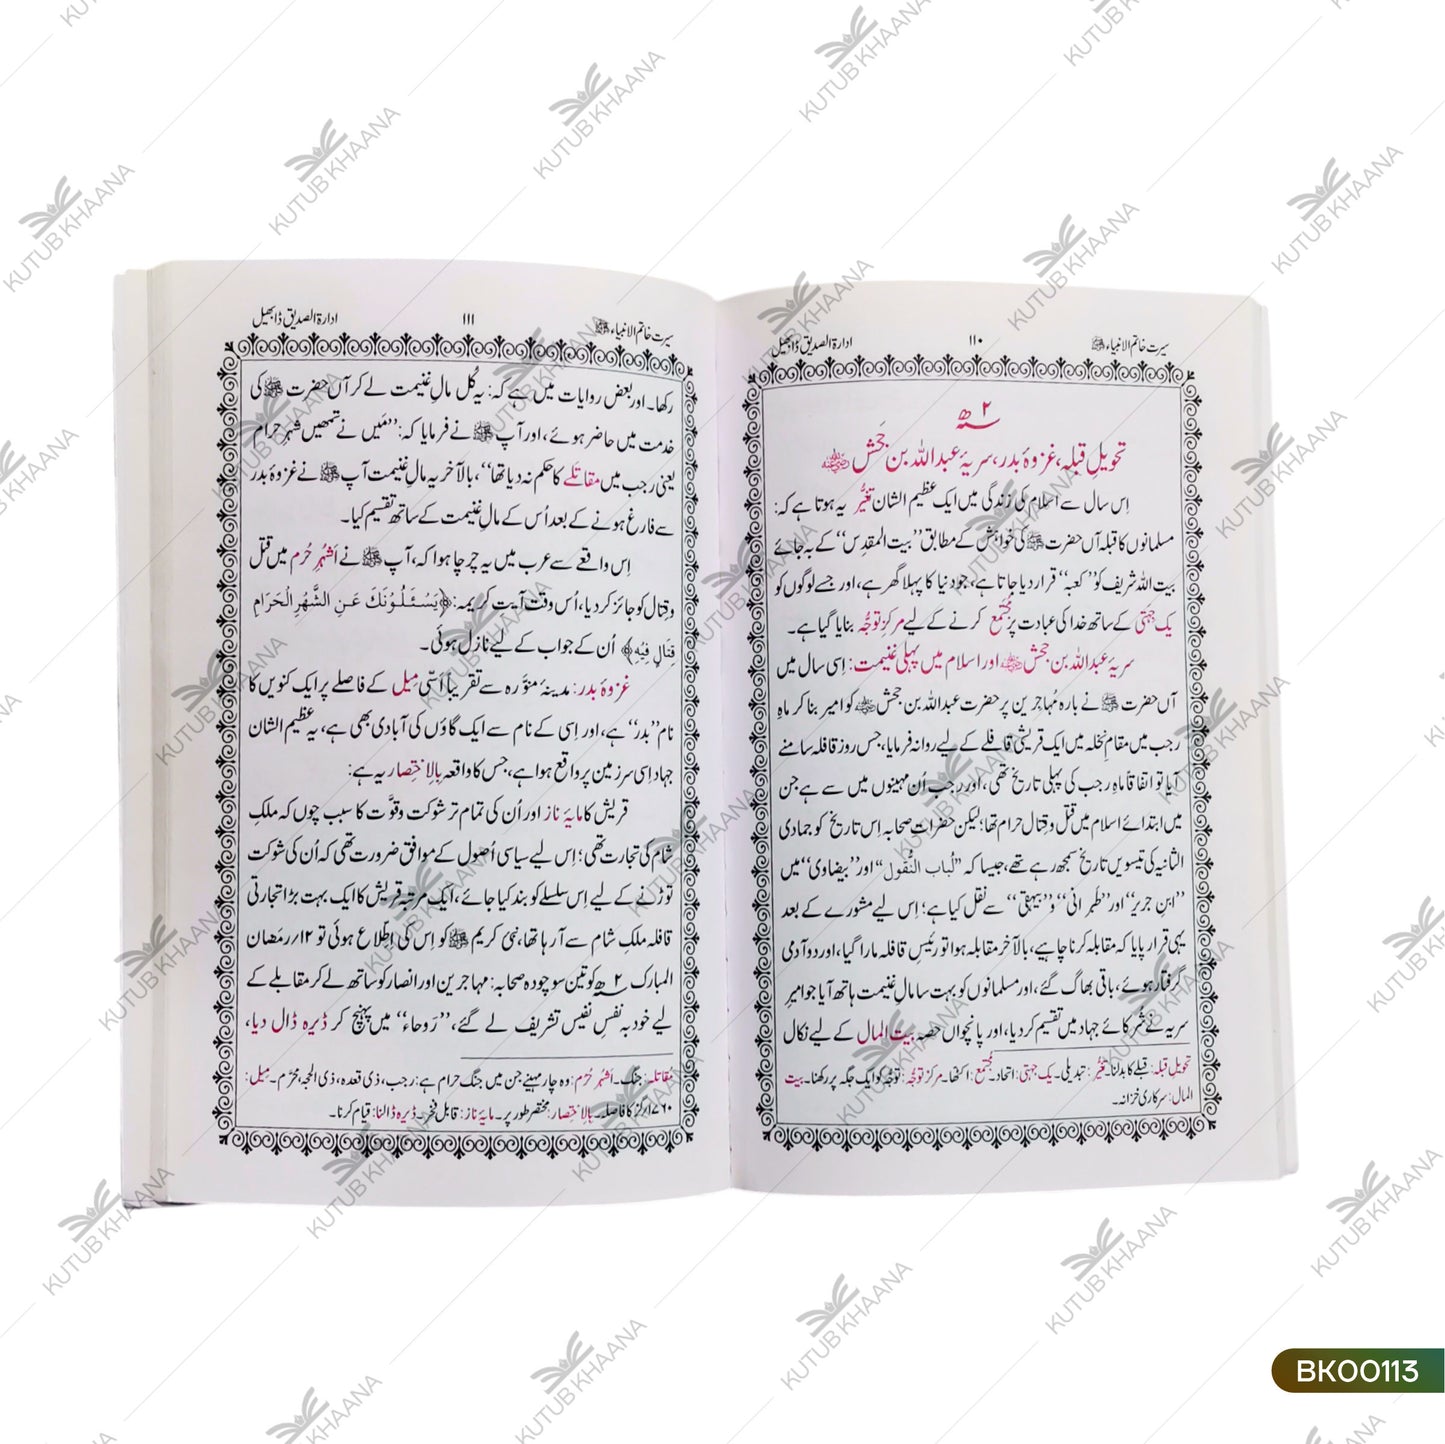 سیرت خاتم الانبیاء ﷺ ۱۱۰ ادارۃ الصدیق ڈابھیل
۲ھ
تحویلِ قبلہ، غزوۂ بدر، سریۂ عبداللہ بن جَحش رضی اللہ عنہ
اِس سال سے اسلام کی زندگی میں ایک عظیم الشان تغیُّر یہ ہوتا ہے کہ:
مسلمانوں کا قبلہ آں حضرت ﷺ کی خواہش کے مطابق ’’بیت المقدِس‘‘ کے بہ جائے
بیت اللہ شریف کو ’’کعبہ‘‘ قرار دیا جاتا ہے، جو دنیا کا پہلا گھر ہے، اور جسے لوگوں کو
یک جِہتی کے ساتھ خدا کی عبادت پر مُجتَمِع کرنے کے لیے مرکزِ توجُّہ بنایا گیا ہے۔
سریۂ عبداللہ بن جحش رضی اللہ عنہ اور اسلام میں پہلی غنیمت: اِسی سال میں
آں حضرت ﷺ نے بارہ مُہاجرین پر حضرت عبداللہ بن جحش رضی اللہ عنہ کو امیر بنا کر ماہِ
رجب میں مقامِ نخلہ میں ایک قریشی قافلے کے لیے روانہ فرمایا، جس روز قافلہ سامنے
آیا تو اتفاقاً ماہِ رجب کی پہلی تاریخ تھی، اور رجب اُن مہینوں میں سے ہے جن
میں ابتدائے اسلام میں قتل و قِتال حرام تھا؛ لیکن حضراتِ صحابہ اِس تاریخ کو جمادی
الثانیہ کی تیسویں تاریخ سمجھ رہے تھے، جیسا کہ ’’لُباب النُّقول‘‘ اور ’’بیضاوی‘‘ میں
’’ابنِ جریر‘‘ اور ’’طَبرانی‘‘ و ’’بیہقی‘‘ سے نقل کیا ہے؛ اِس لیے مشورے کے بعد
یہی قرار پایا کہ مقابلہ کرنا چاہیے، بالآخر مقابلہ ہوا تو رئیسِ قافلہ مارا گیا، اور دو آدمی
گرفتار ہوئے، باقی بھاگ گئے، اور مسلمانوں کو بہت سا مالِ غنیمت ہاتھ آیا جو امیرِ
سریہ نے شرکائے جہاد میں تقسیم کر دیا، اور پانچواں حصہ بیت المال کے لیے نکال
تحویلِ قبلہ: قبلے کا بدلنا۔ تغیُّر: تبدیلی۔ یک جہتی: اتحاد۔ مُجتَمِع: اکٹھا۔ مرکزِ توجُّہ: توجُّہ کو ایک جگہ پر رکھنا۔ بیت
المال: سرکاری خزانہ۔
سیرت خاتم الانبیاء ﷺ ۱۱۱ ادارۃ الصدیق ڈابھیل
رکھا۔ اور بعض روایات میں ہے کہ: یہ کُل مالِ غنیمت لے کر آں حضرت ﷺ کی
خدمت میں حاضر ہوئے، اور آپ ﷺ نے فرمایا کہ: ’’مَیں نے تمھیں شہرِ حرام
یعنی رجب میں مقاتَلے کا حکم نہ دیا تھا‘‘، بالآخر یہ مالِ غنیمت آپ ﷺ نے غزوۂ بدر
سے فارغ ہونے کے بعد اُس کے مالِ غنیمت کے ساتھ تقسیم کیا۔
اِس واقعے سے عرب میں یہ چرچا ہوا کہ، آپ ﷺ نے اَشہُرِ حُرم میں قتل
و قِتال کو جائز کر دیا، اُس وقت آیتِ کریمہ: ﴿يَسْـَٔلُوْنَكَ عَنِ الشَّهْرِ الْحَرَامِ
قِتَالٍ فِيْهِ﴾ اُن کے جواب کے لیے نازل ہوئی۔
غزوۂ بدر: مدینۂ منوَّرہ سے تقریباً اَسّی مِیل کے فاصلے پر ایک کنویں کا
نام ’’بدر‘‘ ہے، اور اِسی کے نام سے ایک گاؤں کی آبادی بھی ہے، یہ عظیم الشان
جہاد اِسی سرزمین پر واقع ہوا ہے، جس کا واقعہ بالاِختصار یہ ہے:
قریش کا مایۂ ناز اور اُن کی تمام تر شوکت و قوَّت کا سبب چوں کہ ملکِ
شام کی تجارت تھی؛ اِس لیے سیاسی اُصول کے موافق ضرورت تھی کہ اُن کی شوکت
توڑنے کے لیے اِس سلسلے کو بند کیا جائے، ایک مرتبہ قریش کا ایک بہت بڑا تجارتی
قافلہ ملکِ شام سے آ رہا تھا، نبیٔ کریم ﷺ کو اِس کی اِطّلاع ہوئی تو ۱۲؍ رمَضان
المبارک ۲ھ کو تین سو چودہ صحابہ: مہاجرین اور انصار کو ساتھ لے کر مقابلے کے
لیے خود بہ نفسِ نفیس تشریف لے گئے، ’’رَوحاء‘‘ میں پہنچ کر ڈیرہ ڈال دیا،
مُقاتلہ: جنگ۔ اَشہُرِ حُرُم: وہ چار مہینے جن میں جنگ حرام ہے: رجب، ذی قعدہ، ذی الحجہ، محرَّم۔ مِیل:
۱۷۶۰ گز کا فاصلہ۔ بالاِختصار: مختصر طور پر۔ مایۂ ناز: قابلِ فخر۔ ڈیرہ ڈالنا: قیام کرنا۔
KUTUB KHAANA
BK00113